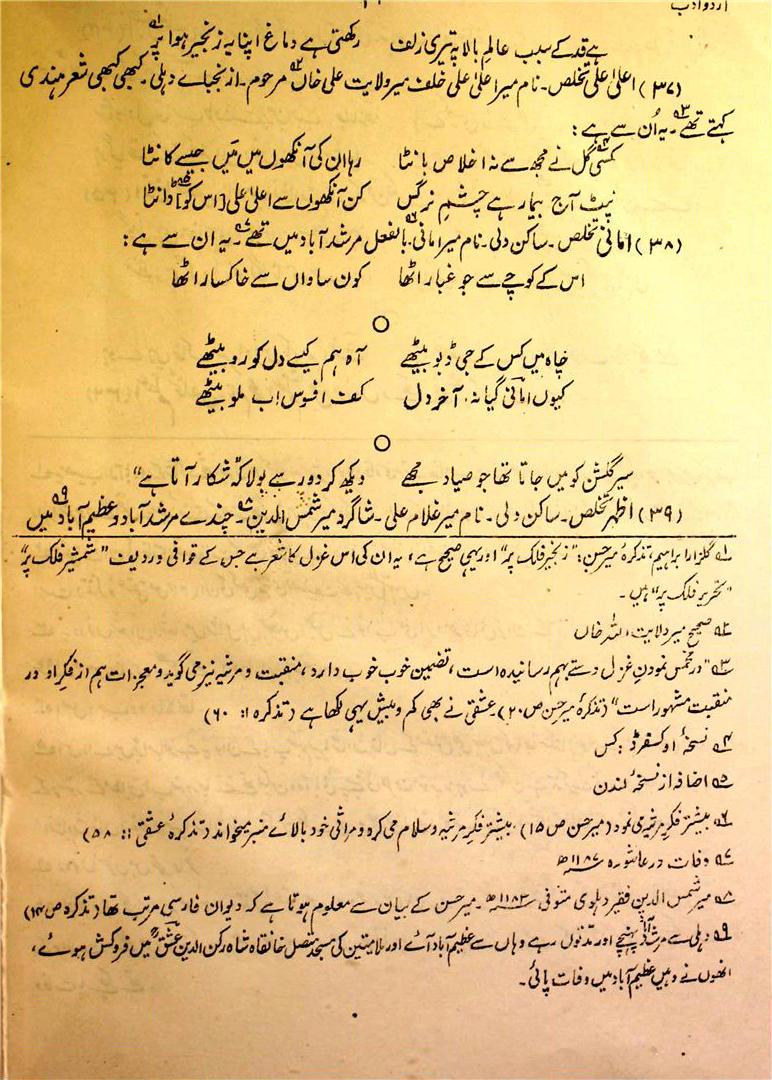 اردو ادب
ہے قد کے سبب عالمِ بالا پہ تیری زلف رکھتی ہے دماغ اپنا یہ زنجیرِ ہوا پر ؎۱
(۳۷) اعلیٰ علی تخلص۔ نام میر اعلیٰ علی خلف میر ولایت علی خاں ؎۲ مرحوم۔ از نجباے دہلی۔ کبھی کبھی شعر ہندی
کہتے تھے ؎۳۔ یہ اُن سے ہے:
کسی ؎۴ گل نے مجھ سے نہ اخلاص بانٹا رہا ان کی آنکھوں میں مَیں جیسے کانٹا
نپٹ آج بیمار ہے چشمِ نرگس کن آنکھوں سے اعلیٰ علی [اس کو] ؎۵ ڈانٹا
(۳۸) امانی تخلص۔ ساکن دلی۔ نام میر امانی۔ ؎۶ بالفعل مرشد آباد میں تھے ؎۷۔ یہ ان سے ہے:
اس کے کوچے سے جو غبار اٹھا کون ساواں سے خاکسار اٹھا
چاہ میں کس کے جی ڈبو بیٹھے آہ ہم کیسے دل کو رو بیٹھے
کیوں امانی گیا نہ، آخر دل کف افسوس اب ملو بیٹھے
سیرِ گلشن کو میں جاتا تھا جو صیاد مجھے دیکھ کر دور سے بولا کہ "شکار آتا ہے"
(۳۹) اظہر تخلص۔ ساکن دلی۔ نام میر غلام علی۔ شاگرد میر شمس الدین ؎۸۔ چندے مرشد آباد و عظیم آباد ؎۹ میں
؎۱ گلزار ابراہیم، تذکرۂ میر حسن: "زنجیر فلک پر" اور یہی صحیح ہے، یہ ان کی اس غزل کا شعر ہے جس کے قوافی و ردیف "شمشیر فلک پر"
"تحریر فلک پر" ہیں۔
؎۲ صحیح میر ولایت اللہ خاں
؎۳ "در مخمس نمودنِ غزل دستے بہم رسانیدہ است، تضمین خوب خوب دارد، منقبت و مرثیہ نیز می گوید و معجزات ہم از فکرِ او در
منقبت مشہور است" (تذکرۂ میر حسن ص ۲۰)۔ عشقی نے بھی کم و بیش یہی لکھا ہے (تذکرہ ۱: ۶۰)
؎۴ نسخۂ اوکسفرڈ: کس
؎۵ اضافہ از نسخۂ لندن
؎۶ بیشتر فکرِ مرثیہ می نمود (میر حسن ص ۱۵)، بیشتر فکرِ مرثیہ و سلام می کرد و مراثی خود بالائے منبر میخواند (تذکرۂ عشقی ۱: ۵۸)
؎۷ وفات در عاشورہ ۱۱۸۷ھ
؎۸ میر شمس الدین فقیر دہلوی متوفی ۱۱۸۳ھ۔ میر حسن کے بیان سے معلوم ہوتا ہے کہ دیوان فارسی مرتب تھا (تذکرہ ص ۱۴)
؎۹ دہلی سے مرشد آباد پہنچے اور مدتوں رہے وہاں سے عظیم آباد آئے اور ملامتین کی مسجد متصل خانقاہ شاہ رکن الدین عشق میں فروکش ہوئے،
انھوں نے وہیں عظیم آباد میں وفات پائی۔